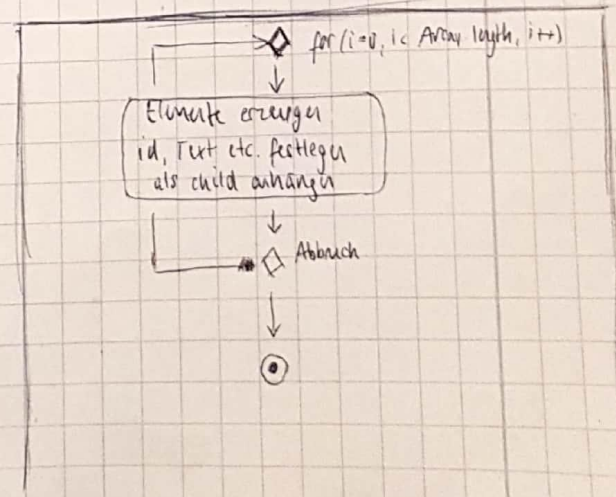 for (i=0, i< Array length, i++)
Elemente erzeugen
id, Text etc. festlegen
als child anhängen
Abbruch